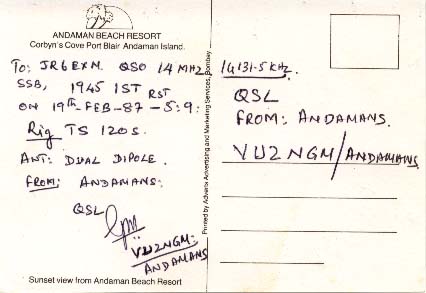 ANDAMAN BEACH RESORT
Corbyn's Cove Port Blair Andaman Island.
To: JR6EXN. QSO 14 MHZ
SSB, 1945 IST RST
ON 19th-FEB-87-5:9:
Rig TS 120S.
ANT: DUAL DIPOLE.
FROM: ANDAMANS:
QSL
VU2NGM:
ANDAMANS
Sunset view from Andaman Beach Resort
Printed by Adverts Advertising and Marketing Services, Bombay
14131.5 KHZ.
QSL
FROM: ANDAMANS.
VU2NGM/ANDAMANS